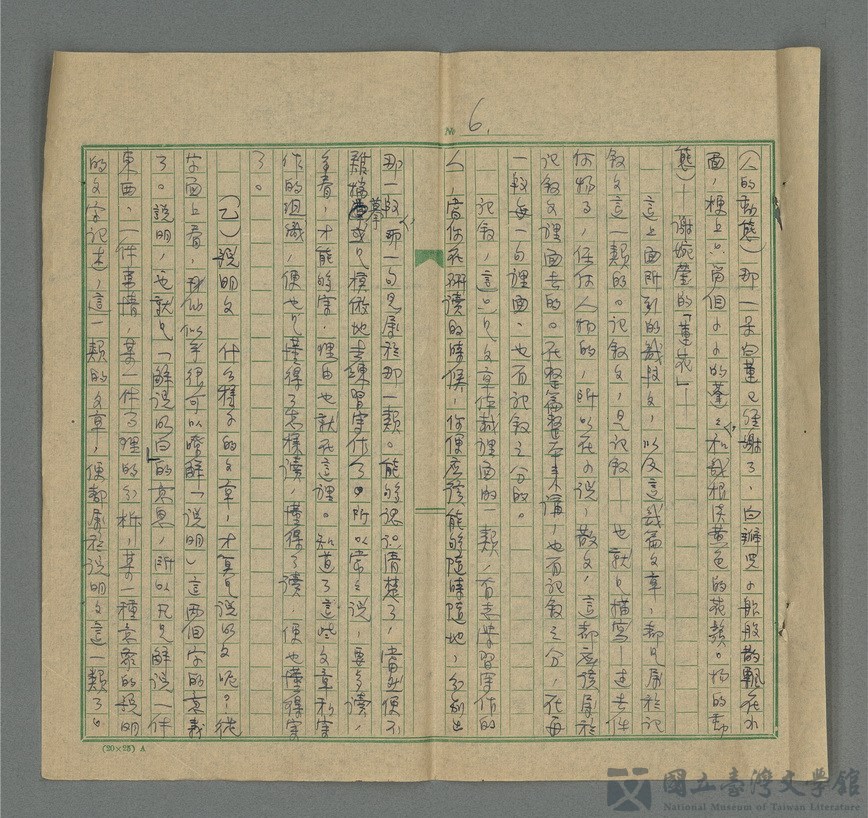 № 6.
(人的動態)那一朵白蓮已經謝了,白瓣兒小船般散飄在水
面,梗上只留個小小的蓬,和幾根淡黃色的花鬚。(物的動
態)—謝婉瑩的「蓮花」—
這上面所引的幾段文,以及這幾篇文章,都是屬於記
敘文這一類的。記敘文,是記敘—也就是描寫,述去件
何物了,任何人物的,所以在小說,散文,這都應該屬於
記敘文裡面去的。在整篇整本來講,也有記敘之分,在每
一段每一句裡面,也有記敘之分的。
記敘,這只是文章體裁裡面的一類,有志學習寫作的
人,當你在研讀的時候,你便應該能夠隨時隨地,分別出
那一段那一句是屬於那一類。能夠認識清楚了,當然便不
難描摹或是模倣地去練習寫作了。所以常常說,要多讀,
多看,才能夠寫,理由也就在這裡。知道了這些文章和寫
作的組織,便也是懂得了怎樣讀,懂得了讀 便也懂得寫
了。
(乙)說明文 什么樣子的文章,才算是說明文呢?從
字面上看,我們似乎很可以瞭解「說明」這兩個字的意義
了。說明,也就是「解說明白」的意思,所以凡是解說一件
東西,一件事情,某一件事理的分析,某一種意象的說明
的文字記述,這一類的文章,便都屬於說明文這一類了。
(20×25) A
國立臺灣文學館
National Museum of Taiwan Literature